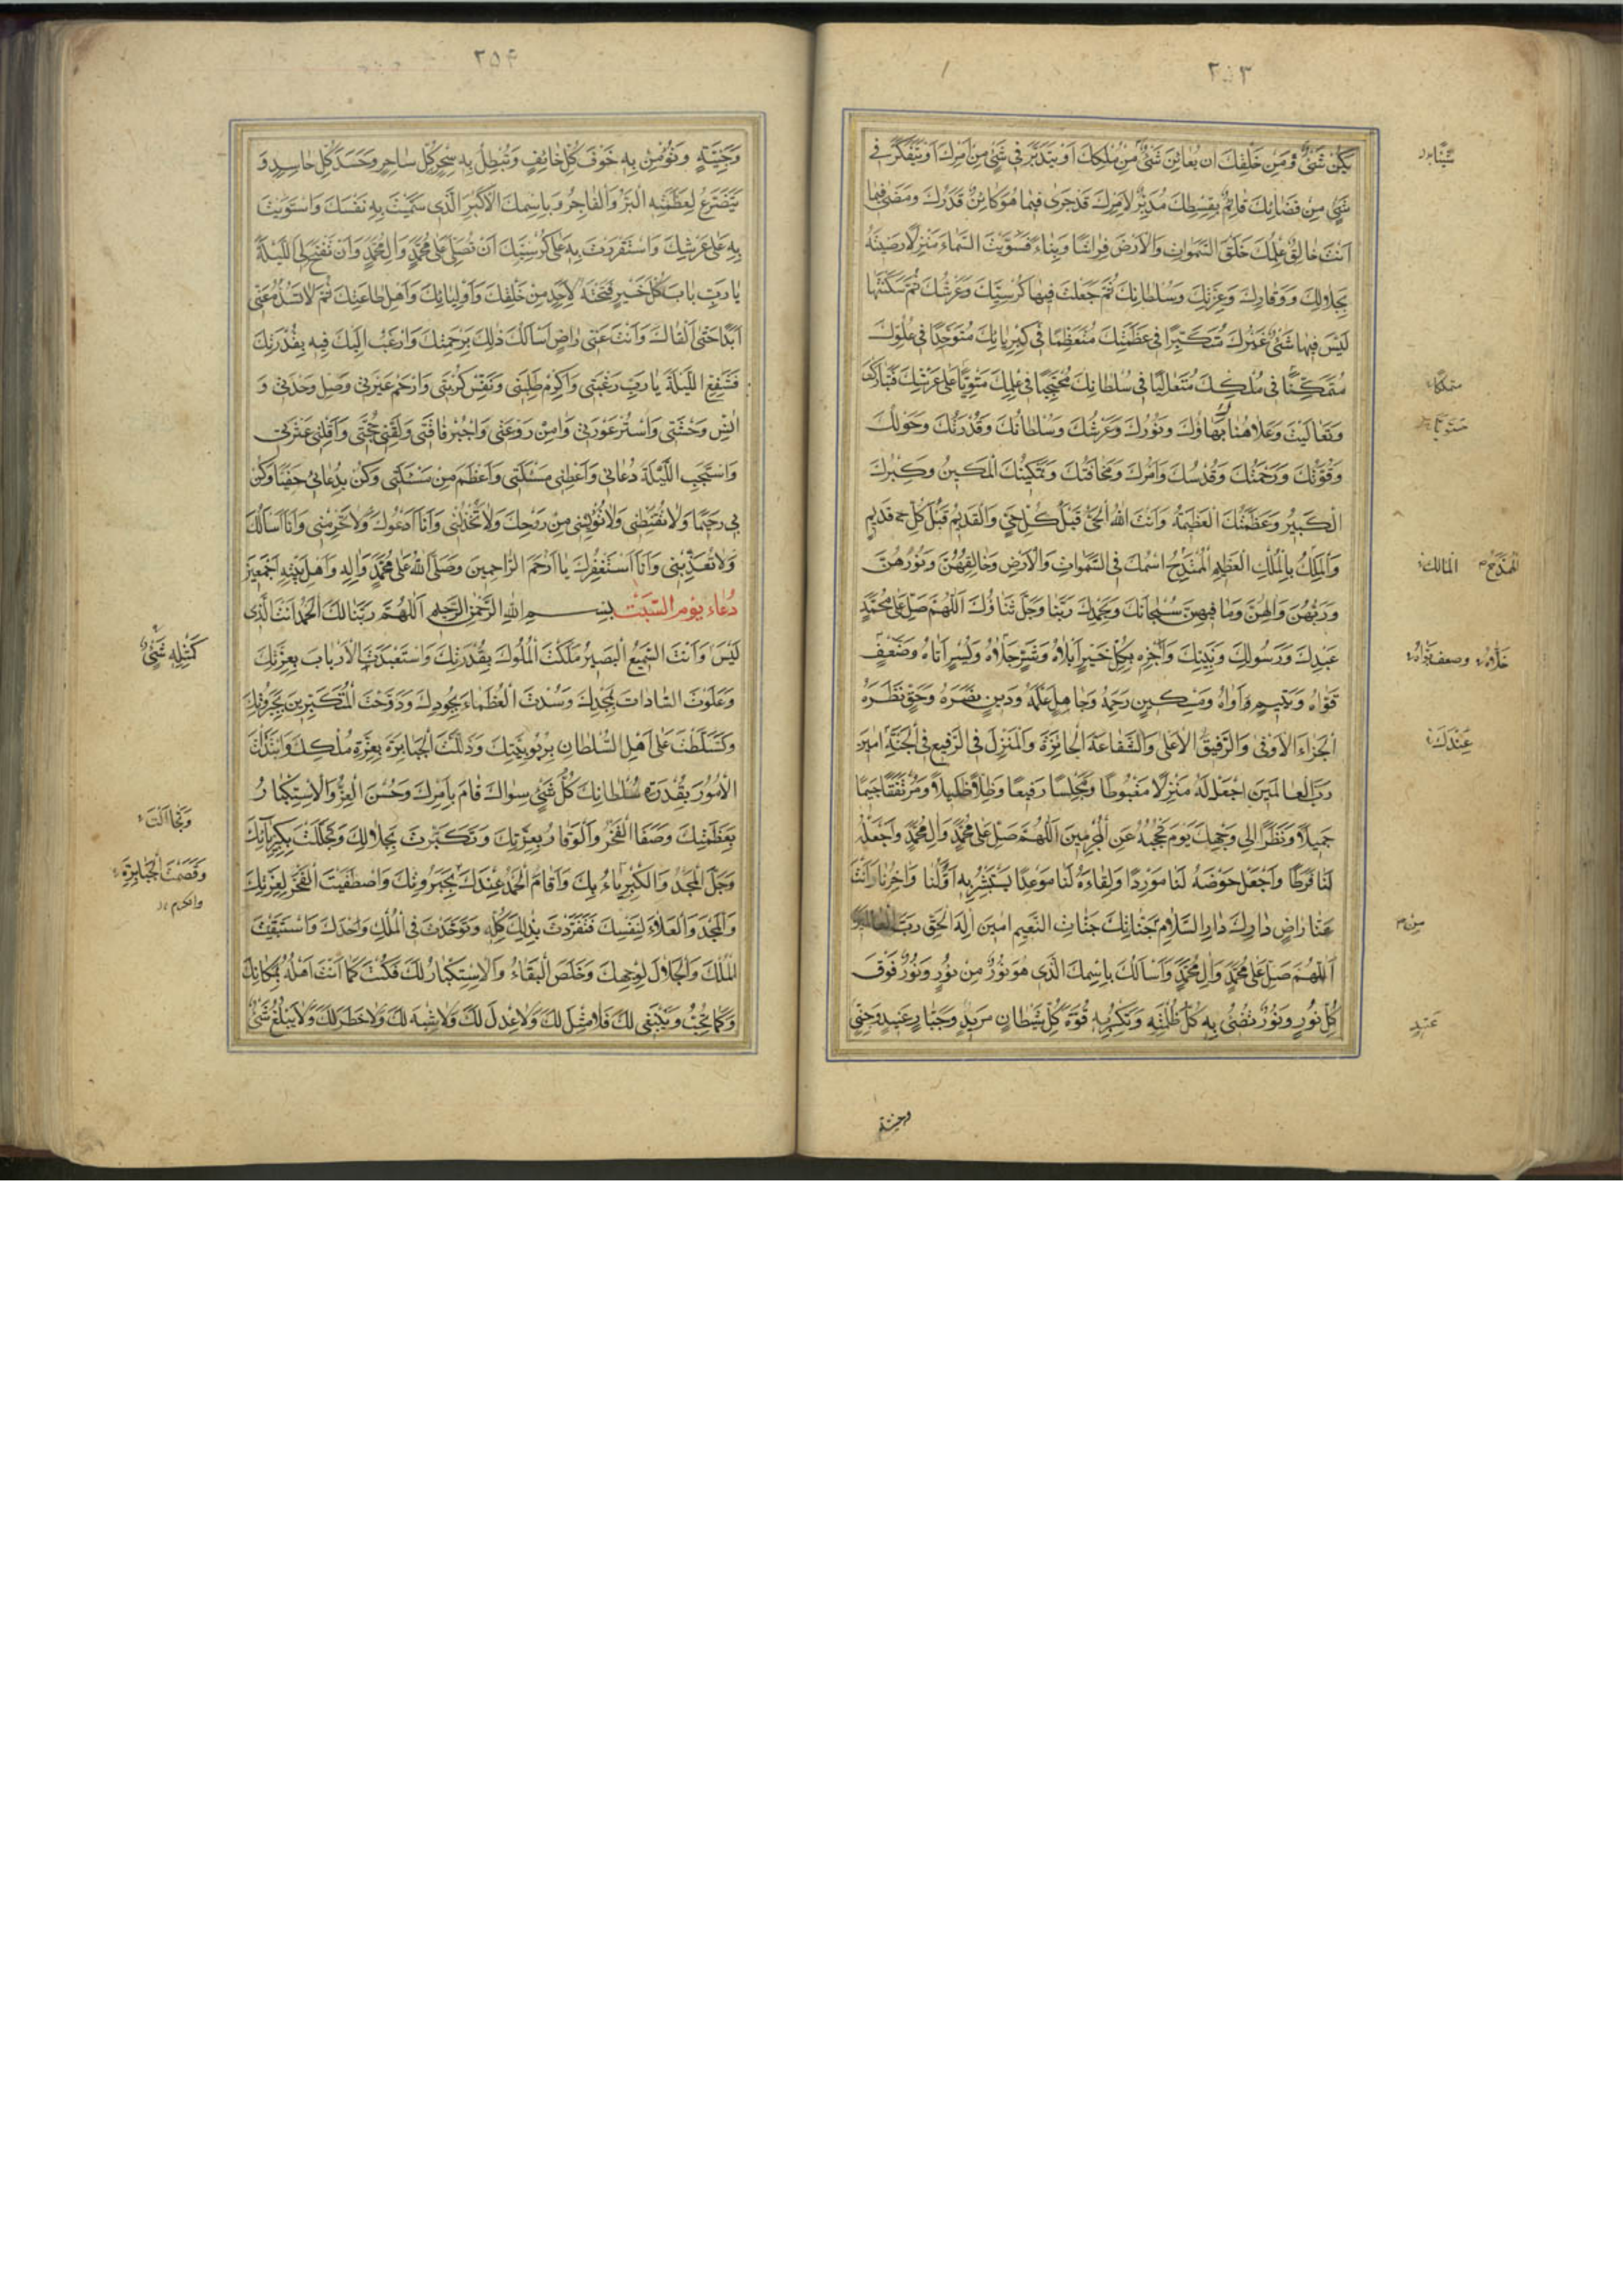 ٢٥٣
يَكُنْ شَىْءٌ وَمِنْ خَلْقِكَ اَنْ يُعَايِنَ شَىْءٌ مِنْ مُلْكِكَ اَوْ يَتَدَبَّرَ فى شَىْءٍ مِنْ اَمْرِكَ اَوْ يَتَفَكَّرَ فى
شَىْءٍ مِنْ قَضَائِكَ قَائِمٌ بِقِسْطِكَ مُدَبِّرٌ لِاَمْرِكَ قَدْ جَرى فيمَا هُوَ كَائِنٌ قَدَرُكَ وَمَضى فيمَا
اَنْتَ خَالِقٌ عِلْمُكَ خَلَقْتَ السَّمٰوَاتِ وَالْاَرْضَ فِرَاشًا وَبِنَاءً فَسَوَّيْتَ السَّمَاءَ مَنْزِلًا رَضيتَهُ
بِجَلَالِكَ وَوَقَارِكَ وَعِزَّتِكَ وَسُلْطَانِكَ ثُمَّ جَعَلْتَ فيهَا كُرْسِيَّكَ وَعَرْشَكَ ثُمَّ سَكَنْتَهَا
لَيْسَ فيهَا شَىْءٌ غَيْرُكَ مُتَكَبِّرًا فى عَظَمَتِكَ مُتَعَظِّمًا فى كِبْرِيَائِكَ مُتَوَحِّدًا فى عُلُوِّكَ
مُتَمَكِّنًا فى مُلْكِكَ مُتَعَالِيًا فى سُلْطَانِكَ مُحْتَجِبًا فى عِلْمِكَ مُسْتَوِيًا عَلى عَرْشِكَ فَتَبَارَكْتَ
وَتَعَالَيْتَ وَعَلَا هُنَاكَ بَهَاؤُكَ وَنُورُكَ وَعَرْشُكَ وَسُلْطَانُكَ وَقُدْرَتُكَ وَحَوْلُكَ
وَقُوَّتُكَ وَرَحْمَتُكَ وَقُدْسُكَ وَاَمْرُكَ وَمَخَافَتُكَ وَتَمْكينُكَ الْمَكينُ وَكِبْرُكَ
الْكَبيرُ وَعَظَمَتُكَ الْعَظيمَةُ وَاَنْتَ اللهُ الْحَىُّ قَبْلَ كُلِّ حَىٍّ وَالْقَديمُ قَبْلَ كُلِّ قَديمٍ
وَالْمَلِكُ بِالْمُلْكِ الْعَظيمِ الْمُمْتَدِحُ اسْمُكَ فِى السَّمٰوَاتِ وَالْاَرْضِ وَخَالِقُهُنَّ وَنُورُهُنَّ
وَرَبُّهُنَّ وَاِلٰهُهُنَّ وَمَا فيهِنَّ سُبْحَانَكَ وَبِحَمْدِكَ رَبَّنَا وَجَلَّ ثَنَاؤُكَ اَللّٰهُمَّ صَلِّ عَلى مُحَمَّدٍ
عَبْدِكَ وَرَسُولِكَ وَنَبِيِّكَ وَاجْزِهِ بِكُلِّ خَيْرٍ اَبْلَاهُ وَشَرٍّ جَلَاهُ وَيُسْرٍ اَتَاهُ وَضَعْفٍ
قَوَّاهُ وَيَتيمٍ اٰوَاهُ وَمِسْكينٍ رَحِمَهُ وَجَاهِلٍ عَلَّمَهُ وَدينٍ نَصَرَهُ وَحَقٍّ نَظَرَهُ
الْجَزَاءَ الْاَوْفى وَالرَّفيقَ الْاَعْلى وَالشَّفَاعَةَ الْجَائِزَةَ وَالْمَنْزِلَ الرَّفيعَ فِى الْجَنَّةِ اٰمينَ
رَبَّ الْعَالَمينَ اجْعَلْ لَهُ مَنْزِلًا مَغْبُوطًا وَمَجْلِسًا رَفيعًا وَظِلًّا ظَليلًا وَمُرْتَفَقًا جَسيمًا
جَميلًا وَنَظَرًا اِلى وَجْهِكَ يَوْمَ تَحْجُبُهُ عَنِ الْمُجْرِمينَ اَللّٰهُمَّ صَلِّ عَلى مُحَمَّدٍ وَاٰلِ مُحَمَّدٍ وَاجْعَلْهُ
لَنَا فَرَطًا وَاجْعَلْ حَوْضَهُ لَنَا مَوْرِدًا وَلِقَاءَهُ لَنَا مَوْعِدًا يَسْتَبْشِرُ بِهِ اَوَّلُنَا وَاٰخِرُنَا وَاَنْتَ
عَنَّا رَاضٍ دَارِكَ دَارِ السَّلَامِ جِنَانِكَ جَنَّاتِ النَّعيمِ اٰمينَ اِلٰهَ الْحَقِّ رَبَّ الْعَالَمينَ
اَللّٰهُمَّ صَلِّ عَلى مُحَمَّدٍ وَاٰلِ مُحَمَّدٍ وَاَسْاَلُكَ بِاسْمِكَ الَّذى هُوَ نُورٌ مِنْ نُورٍ وَنُورٌ فَوْقَ
كُلِّ نُورٍ وَنُورٌ تُضيءُ بِهِ كُلَّ ظُلْمَةٍ وَتَكْسِرُ بِهِ قُوَّةَ كُلِّ شَيْطَانٍ مَريدٍ وَجَبَّارٍ عَنيدٍ وَجِنّىٍ
المالك
عِنْدَكَ
مِنْ
وجنية
٢٥۴
وَجِنِّيَّةٍ وَتُؤْمِنُ بِهِ خَوْفَ كُلِّ خَائِفٍ وَتُبْطِلُ بِهِ سِحْرَ كُلِّ سَاحِرٍ وَحَسَدَ كُلِّ حَاسِدٍ وَ
يَتَضَرَّعُ لِعَظَمَتِهِ الْبَرُّ وَالْفَاجِرُ وَبِاسْمِكَ الْاَكْبَرِ الَّذى سَمَّيْتَ بِهِ نَفْسَكَ وَاسْتَوَيْتَ
بِهِ عَلى عَرْشِكَ وَاسْتَقْرَرْتَ بِهِ عَلى كُرْسِيِّكَ اَنْ تُصَلِّىَ عَلى مُحَمَّدٍ وَاٰلِ مُحَمَّدٍ وَاَنْ تَفْتَحَ لِىَ اللَّيْلَةَ
يَا رَبِّ بَابَ كُلِّ خَيْرٍ فَتَحْتَهُ لِاَحَدٍ مِنْ خَلْقِكَ وَاَوْلِيَائِكَ وَاَهْلِ طَاعَتِكَ ثُمَّ لَا تَسُدَّهُ عَنّى
اَبَدًا حَتّى اَلْقَاكَ وَاَنْتَ عَنّى رَاضٍ اَسْاَلُكَ ذٰلِكَ بِرَحْمَتِكَ وَاَرْغَبُ اِلَيْكَ فيهِ بِقُدْرَتِكَ
فَشَفِّعِ اللَّيْلَةَ يَا رَبِّ رَغْبَتى وَاَكْرِمْ طَلِبَتى وَنَفِّسْ كُرْبَتى وَارْحَمْ عَبْرَتى وَصِلْ وَحْدَتى وَ
اٰنِسْ وَحْشَتى وَاسْتُرْ عَوْرَتى وَاٰمِنْ رَوْعَتى وَاجْبُرْ فَاقَتى وَلَقِّنى حُجَّتى وَاَقِلْنى عَثْرَتى
وَاسْتَجِبِ اللَّيْلَةَ دُعَائى وَاَعْطِنى مَسْئَلَتى وَاَعْظَمَ مِنْ مَسْئَلَتى وَكُنْ بِدُعَائى حَفِيًّا وَكُنْ
بى رَحيمًا وَلَا تُقَنِّطْنى وَلَا تُؤْيِسْنى مِنْ رَوْحِكَ وَلَا تَخْذُلْنى وَاَنَا اَدْعُوكَ وَلَا تَحْرِمْنى وَاَنَا اَسْاَلُكَ
وَلَا تُعَذِّبْنى وَاَنَا اَسْتَغْفِرُكَ يَا اَرْحَمَ الرَّاحِمينَ وَصَلَّى اللهُ عَلى مُحَمَّدٍ وَاٰلِهِ وَاَهْلِ بَيْتِهِ اَجْمَعينَ
دُعَاء يَوْم السَّبْت بِسْمِ اللهِ الرَّحْمٰنِ الرَّحيمِ اَللّٰهُمَّ رَبَّنَا لَكَ الْحَمْدُ اَنْتَ الَّذى
لَيْسَ وَاَنْتَ السَّميعُ الْبَصيرُ مَلَكْتَ الْمُلُوكَ بِقُدْرَتِكَ وَاسْتَعْبَدْتَ الْاَرْبَابَ بِعِزَّتِكَ
وَعَلَوْتَ السَّادَاتِ بِمَجْدِكَ وَسُدْتَ الْعُظَمَاءَ بِجُودِكَ وَدَوَّخْتَ الْمُتَكَبِّرينَ بِجَبَرُوتِكَ
وَتَسَلَّطْتَ عَلى اَهْلِ السُّلْطَانِ بِرُبُوبِيَّتِكَ وَذَلَّلْتَ الْجَبَابِرَةَ بِعِزَّةِ مُلْكِكَ وَابْتَدَأْتَ
الْاُمُورَ بِقُدْرَةِ سُلْطَانِكَ كُلُّ شَىْءٍ سِوَاكَ قَامَ بِاَمْرِكَ وَحُسْنَ الْعِزُّ وَالْاِسْتِكْبَارُ
بِعَظَمَتِكَ وَصَفَا الْفَخْرُ وَالْوَقَارُ بِعِزَّتِكَ وَتَكَبَّرْتَ بِجَلَالِكَ وَتَجَلَّلْتَ بِكِبْرِيَائِكَ
وَجَلَّ الْمَجْدُ وَالْكِبْرِيَاءُ بِكَ وَاَقَامَ الْحَمْدُ عِنْدَكَ بِجَبَرُوتِكَ وَاصْطَفَيْتَ الْفَخْرَ لِعِزَّتِكَ
وَالْمَجْدَ وَالْعَلَاءَ لِنَفْسِكَ فَتَفَرَّدْتَ بِذٰلِكَ كُلِّهِ وَتَوَحَّدْتَ فِى الْمُلْكِ وَحْدَكَ وَاسْتَبْقَيْتَ
الْمُلْكَ وَالْجَلَالَ لِوَجْهِكَ وَخَلَصَ الْبَقَاءُ وَالْاِسْتِكْبَارُ لَكَ فَكُنْتَ كَمَا اَنْتَ اَهْلُهُ بِمَكَانِكَ
وَكَمَا تُحِبُّ وَيَنْبَغى لَكَ فَلَا مِثْلَ لَكَ وَلَا عِدْلَ لَكَ وَلَا شِبْهَ لَكَ وَلَا خَطَرَ لَكَ وَلَا يَبْلُغُ شَىْءٌ
كَمِثْلِهِ شَىْءٌ
وَقَصَمْتَ الْجَبَابِرَةَ